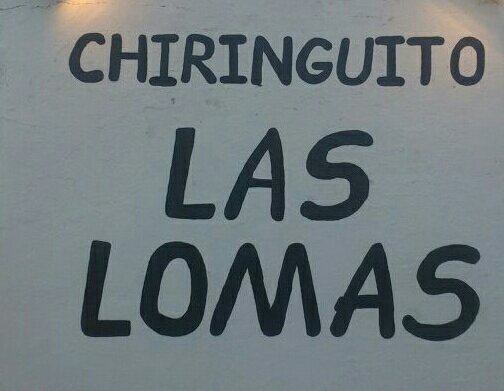 CHIRINGUITO
LAS
LOMAS